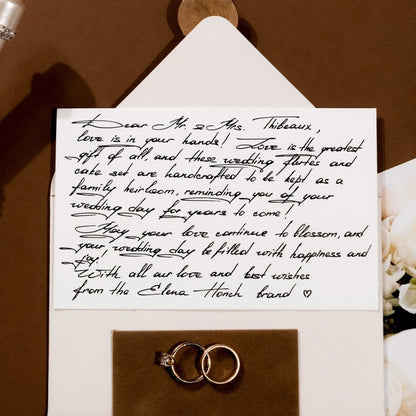 Dear Mr. & Mrs. Thibeaux,
love is in your hands! Love is the greatest
gift of all, and these wedding flutes and
cake set are handcrafted to be kept as a
family heirloom, reminding you of your
wedding day for years to come!
May your love continue to blossom, and
your wedding day be filled with happiness and
joy!
With all our love and best wishes
from the Elena Honch brand ♡